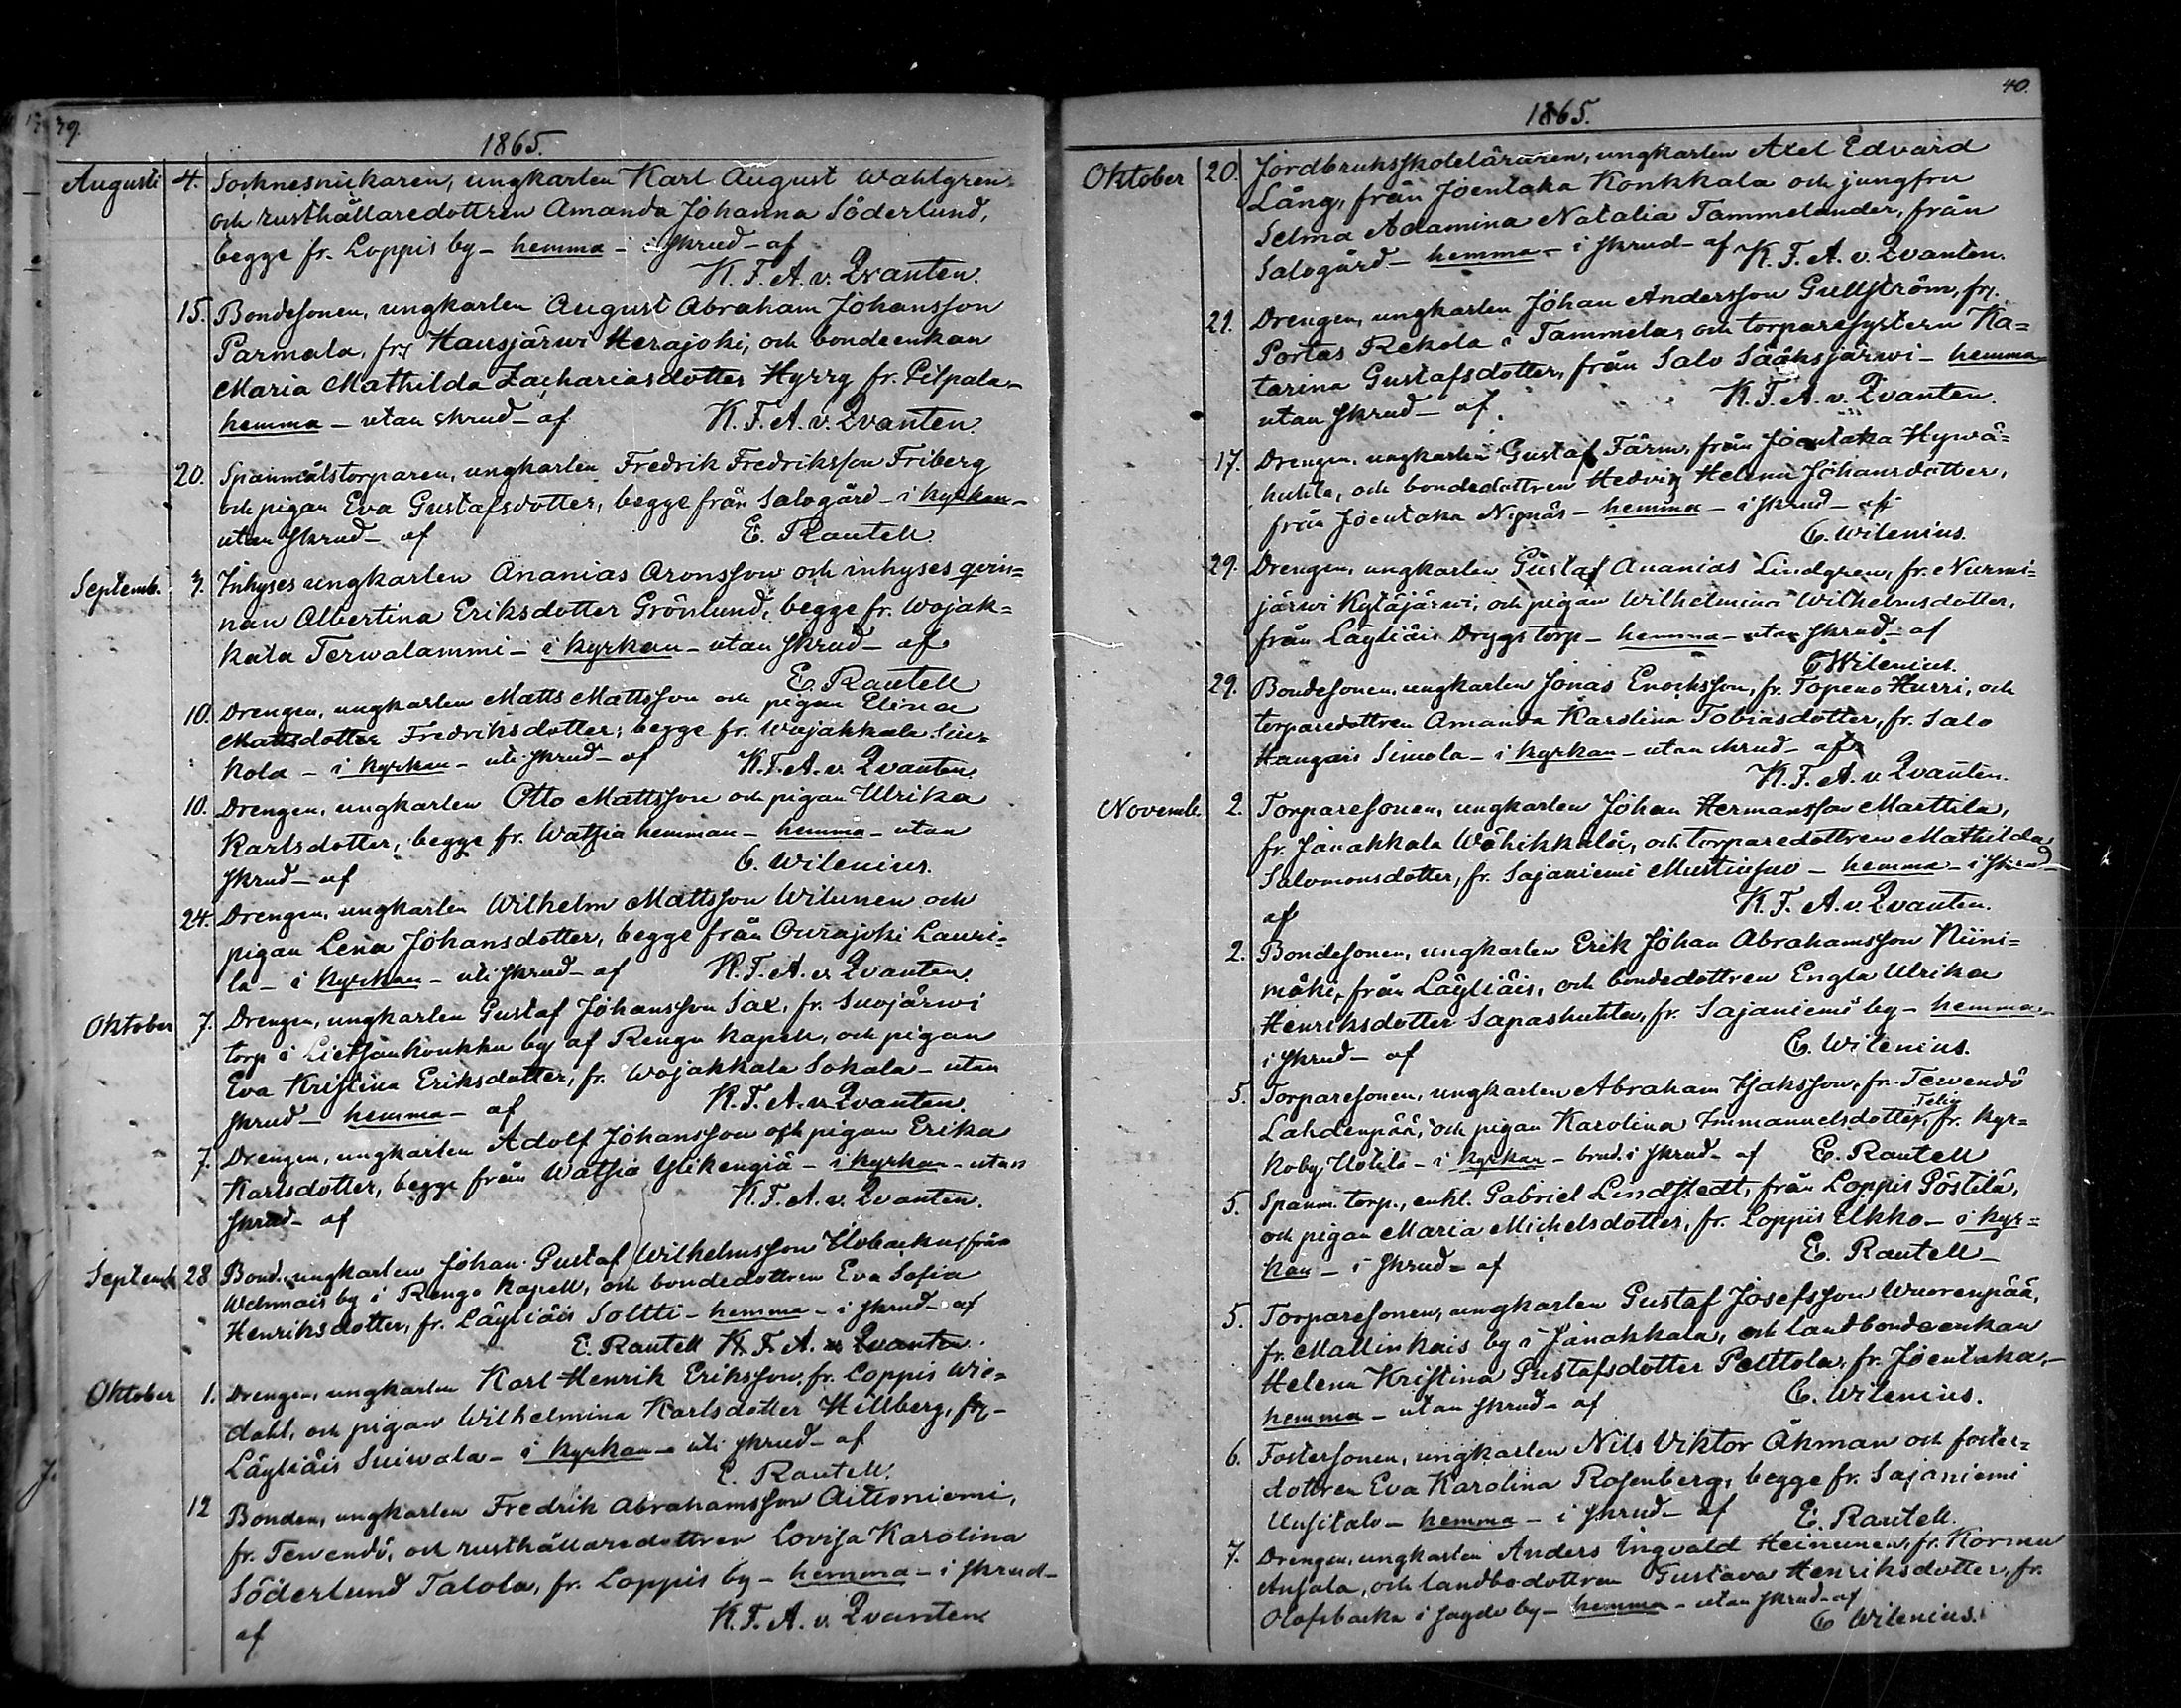 39.
1865.
Augusti 4. Socknesnickaren, ungkarlen Karl August Wahlgren
och rusthållaredottren Amanda Johanna Söderlund,
begge fr. Loppis by – hemma – i skrud – af
K. F. A. v. Qvanten.
15. Bondesonen, ungkarlen August Abraham Johansson
Parmala, fr. Hausjärwi Herajoki, och bondeenkan
Maria Mathilda Zachariasdotter Hyrry fr. Pilpala –
hemma – utan skrud – af K. F. A. v. Qvanten.
20. Spanmålstorparen, ungkarlen Fredrik Fredriksson Friberg
och pigan Eva Gustafsdotter, begge från Salogård – i kyrkan –
utan skrud – af E. Rautell
Septemb. 3. Inhyses ungkarlen Ananias Aronsson och inhyses qvin=
nan Albertina Eriksdotter Grönlund, begge fr. Wojak=
kala Terwalammi – i kyrkan – utan skrud – af
E. Rautell
10. Drengen, ungkarlen Matts Mattsson och pigan Elina
Mattsdotter Fredriksdotter, begge fr. Wojakkala
kola – i kyrkan – uti skrud – af K. F. A. v. Qvanten.
10. Drengen, ungkarlen Otto Mattsson och pigan Ulrika
Karlsdotter, begge fr. Watsia hemman – hemma – utan
skrud – af C. Wilenius.
24. Drengen, ungkarlen Wilhelm Mattsson Wilunen och
pigan Lena Johansdotter, begge från Ourajoki Lauri=
la – i kyrkan – uti skrud – af K. F. A. v. Qvanten.
Oktober 7. Drengen, ungkarlen Gustaf Johansson Sax, fr. Suojärwi
torp i by af Rengo kapell, och pigan
Eva Kristina Eriksdotter, fr. Wojakkala Sokala – utan
skrud – hemma – af K. F. A. v. Qvanten.
7. Drengen, ungkarlen Adolf Johansson och pigan Erika
Karlsdotter, begge från Watsia Ylikengiä – i kyrkan – utan
skrud – af K. F. A. v. Qvanten.
Septemb. 28 Bond. ungkarlen Johan Gustaf Wilhelmsson från
Wehmais by i Rengo kapell, och bondedottren Eva Sofia
Henriksdotter, fr. Läyliäis Soltti – hemma – i skrud – af
E. Rautell K. F. A. v. Qvanten.
Oktober 1. Drengen, ungkarlen Karl Henrik Eriksson, fr. Loppis Wie=
dahl, och pigan Wilhelmina Karlsdotter Hillberg, fr.
Läyliäis Suiwala – i kyrkan – uti skrud – af
E. Rautell.
12 Bonden, ungkarlen Fredrik Abrahamsson Aittoniemi,
fr. Tewendö, och rusthållaredottren Lovisa Karolina
Söderlund Talola, fr. Loppis by – hemma – i skrud –
af K. F. A. v. Qvanten
40.
1865.
Oktober 20. Jordbruksskoleläraren, ungkarlen Axel Edvard
Lång, från Joentaka Konkkala och jungfru
Selma Adamina Natalia Tammelander, från
Salogård – hemma – i skrud – af K. F. A. v. Qvanten.
21. Drengen, ungkarlen Johan Andersson Gullström, fr.
Portas Rekola i Tammela, och torparesystern Ka=
tarina Gustafsdotter, från Salo Sääksjärwi – hemma –
utan skrud – af K. F. A. v. Qvanten.
17. Drengen, ungkarlen Gustaf Färm, från Joentaka Hywä=
huhta, och bondedottren Hedvig Helena Johansdotter,
från Joentaka Nynäs – hemma – i skrud – af
C. Wilenius.
29. Drengen, ungkarlen Gustaf Ananias Lindgren, fr. Nurmi=
järwi Kytäjärwi, och pigan Wilhelmina Wilhelmsdotter,
från Läyliäis Drygstorp – hemma – utan skrud – af
C Wilenius.
29. Bondesonen, ungkarlen Jonas Enocksson, fr. Topeno Hurri, och
torparedottren Amanda Karolina Tobiasdotter, fr. Salo
Hangais Simola – i kyrkan – utan skrud – af
K. F. A. v. Qvanten.
Novemb. 2. Torparesonen, ungkarlen Johan Hermansson Marttila,
fr. Janakkala Wähikkälä, och torparedottren Mathilda
Salomonsdotter, fr. Sajaniemi Mustinsuo – hemma – i skrud –
af K. F. A. v. Qvanten.
2. Bondesonen, ungkarlen Erik Johan Abrahamsson Niini=
mäki, från Läyliäis, och bondedottren Engla Ulrika
Henriksdotter Sapashuhta, fr. Sajaniemi by – hemma –
i skrud – af C. Wilenius.
5. Torparesonen, ungkarlen Abraham Isaksson, fr. Tewendö
Lahdenpää, och pigan Karolina Immanuelsdotter, fr. Kyr=
koby Uotila – i kyrkan – brud. i skrud – af E. Rautell
5. Spanm. torp., enkl. Gabriel Lindstedt, från Loppis Pöstilä,
och pigan Maria Michelsdotter, fr. Loppis Ukko – i kyr=
kan – i skrud – af E. Rautell –
5. Torparesonen, ungkarlen Gustaf Josefsson Wuorenpää,
fr. Mallinkais by i Janakkala, och landbondeenkan
Helena Kristina Gustafsdotter Pelttola, fr. Joentaka, –
hemma – utan skrud – af C. Wilenius.
6. Fostersonen, ungkarlen Nils Viktor Åkman och foster=
dottren Eva Karolina Rosenberg, begge fr. Sajaniemi
Uusitalo – hemma – i skrud – af E. Rautell.
7. Drengen, ungkarlen Anders Ingvald Heinunen, fr. Kormu
Ansala, och landbodottren Gustava Henriksdotter, fr.
Olofsbacka i Sayde by – hemma – utan skrud – af
C Wilenius.